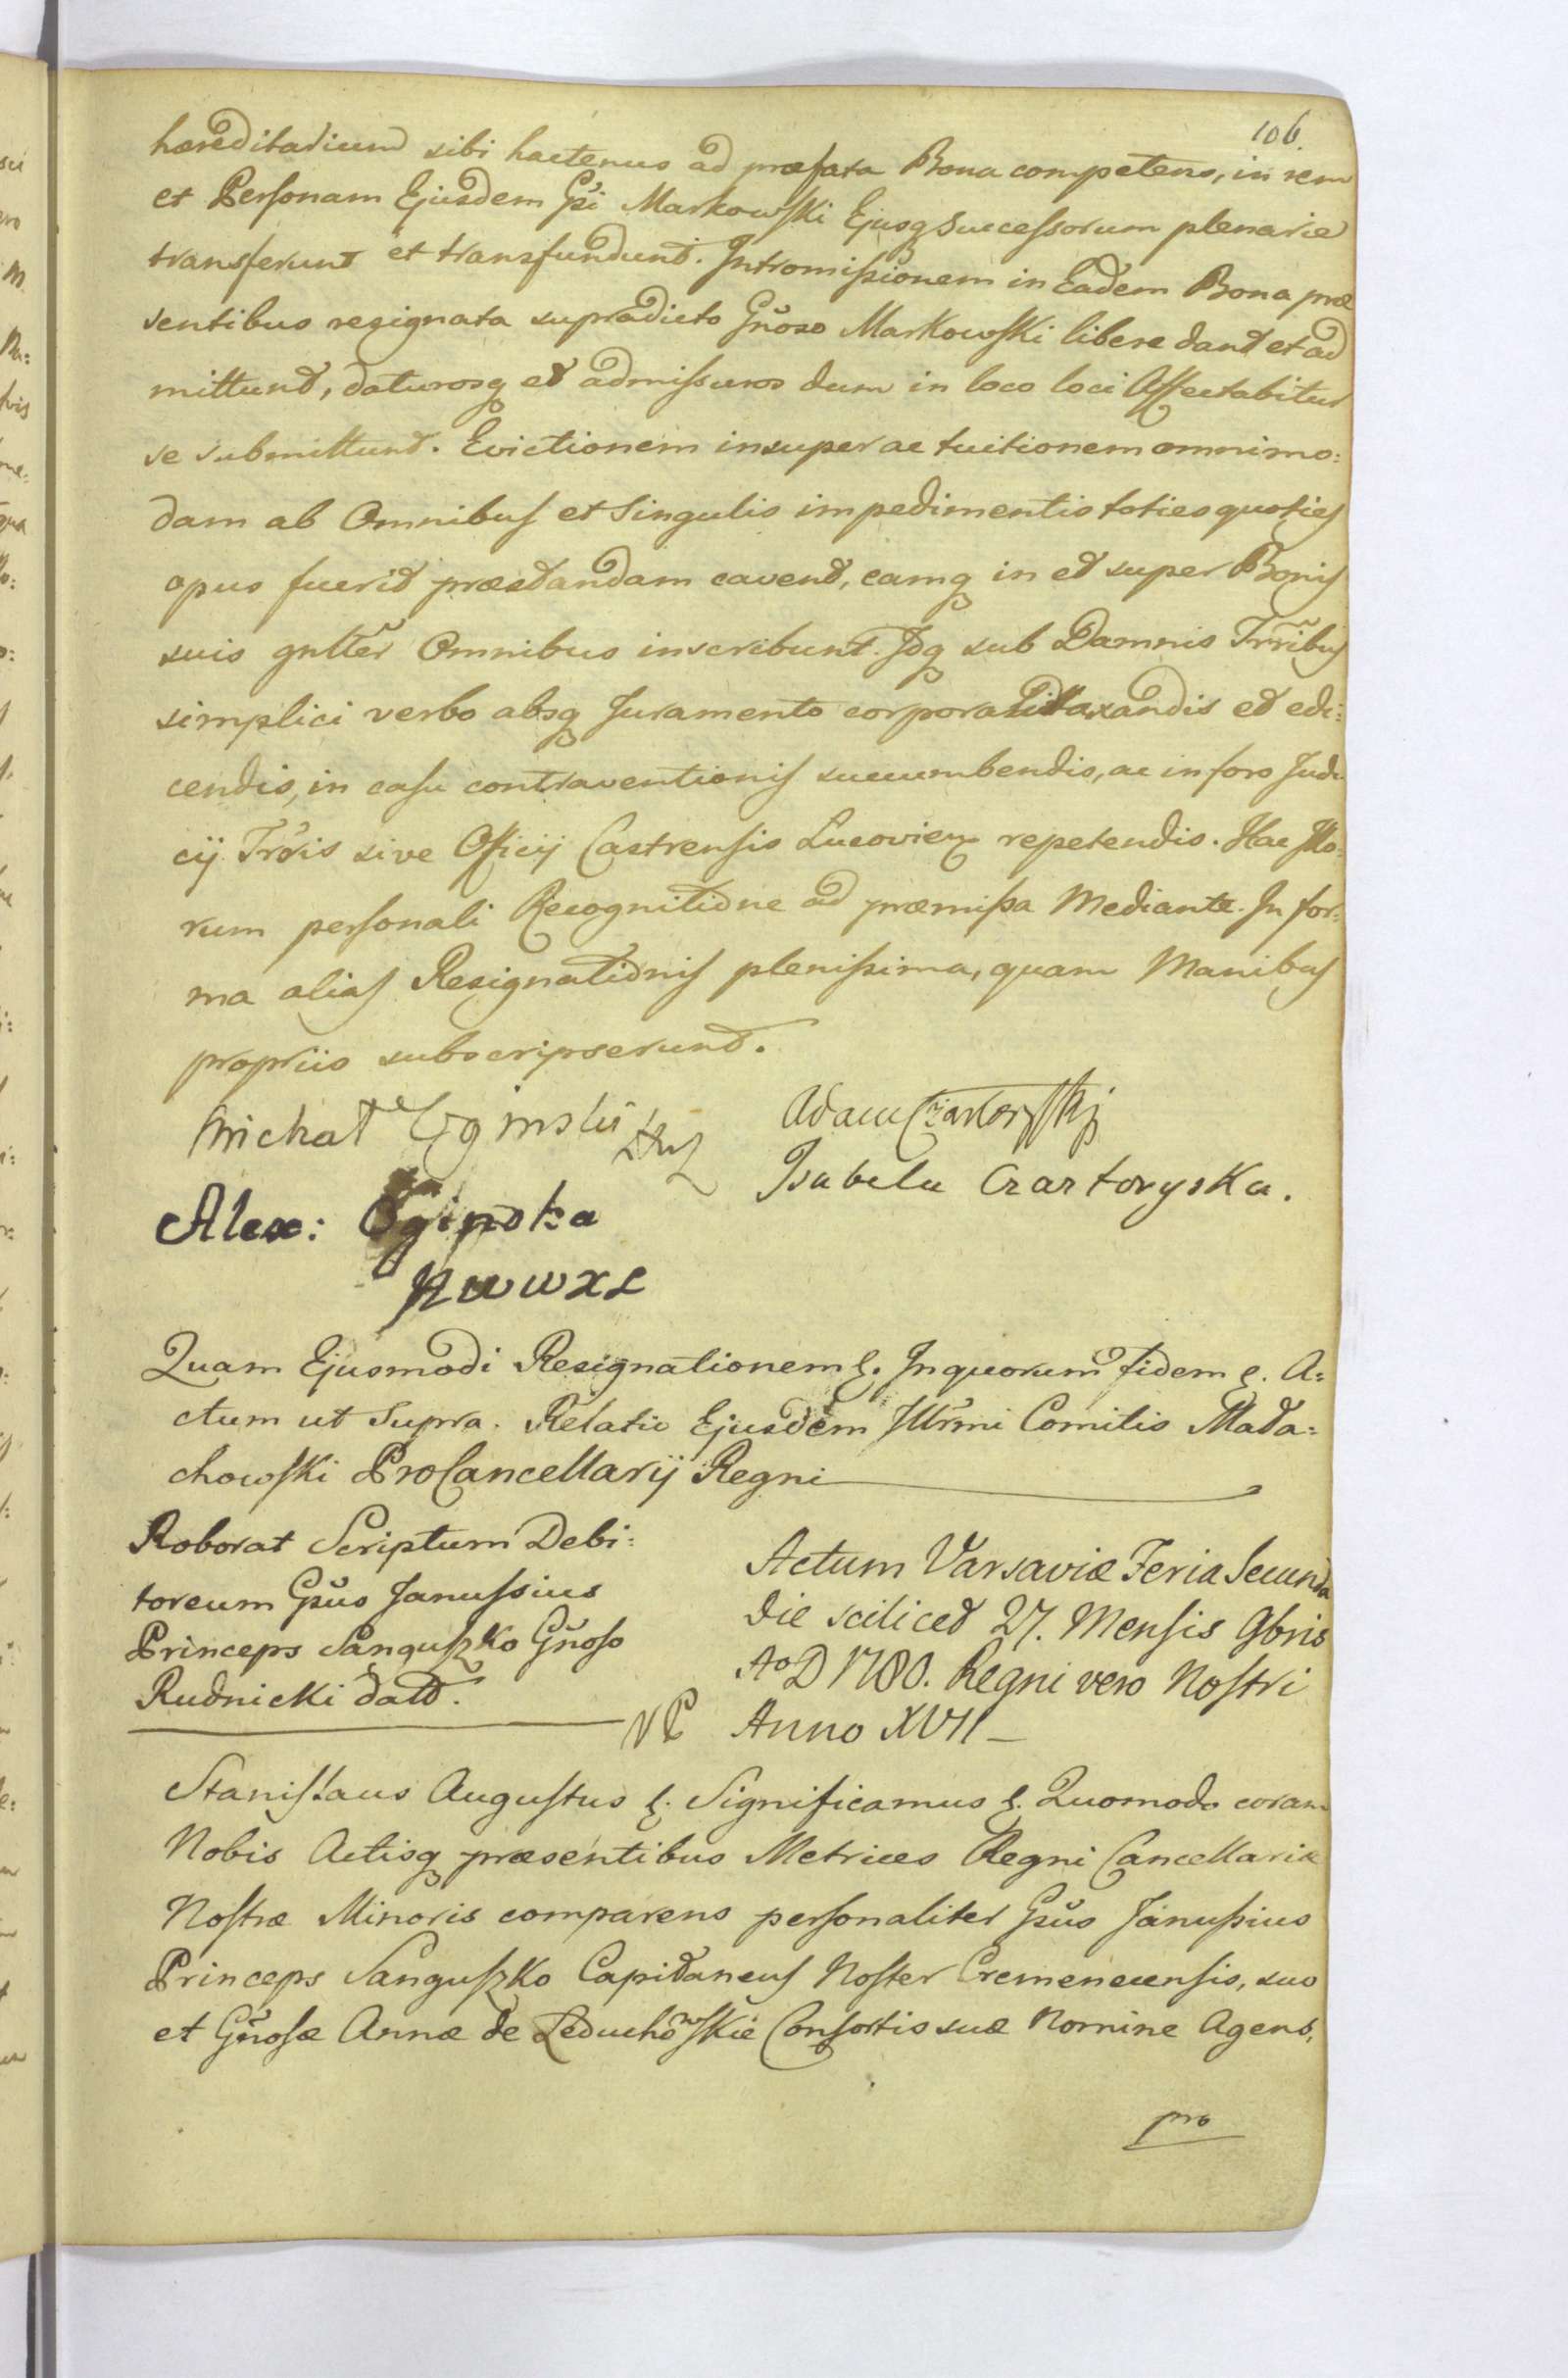 106.
hæreditarium sibi hactenus ad præfata Bona competens, in rem
et Personam Ejusdem Gsi Markowski Ejusq Successorum plenarie
transferunt et transfundunt. Intromissionem in Eadem Bona præ
sentibus resignata supradicto Gnoso Markowski libere dant et ad
mittunt, daturosq et admissuros dum in loco loci Affectabitur
se submittunt. Evictionem insuper ac tuitionem omnimo:
dam ab Omnibus et Singulis impedimentis toties quoties
opus fuerit præstandam cavent, eamq in et super Bonis
suis gnlter Omnibus inscribunt. Idq sub Damnis Trribus
simplici verbo absq Juramento corporali taxandis et edi:
cendis, in casu contraventionis succumbendis, ac in foro Judi
cij Trris sive Officij Castrensis Lucovien repetendis. Hac Illo:
rum personali Recognitione ad præmissa Mediante. In for:
ma alias Resignationis plenissima, quam Manibus
propriis subscripserunt.
Michał Ogiński
Adam Czartoryski
Isabela Czartoryska.
Alex: Oginska
HWWXL
Quam Ejusmodi Resignationem &. In quorum fidem &. A:
ctum ut Supra. Relatio Ejusdem Illrmi Comitis Mała:
chowski ProCancellarij Regni
Roborat Scriptum Debi:
toreum Gsus Janussius
Princeps Sanguszko Gnoso
Rudnicki datt.
Actum Varsaviæ Feria Secunda
die scilicet 27. Mensis 9bris
Ao D 1780. Regni vero Nostri
VP Anno XVII
Stanislaus Augustus &. Significamus &. Quomodo coram
Nobis Actisq præsentibus Metrices Regni Cancellariæ
Nostræ Minoris comparens personaliter Gsus Janussius
Princeps Sanguszko Capitaneus Noster Cremenecensis, suo
et Gnosæ Annæ de Leduchowskie Consortis suæ Nomine Agens,
pro